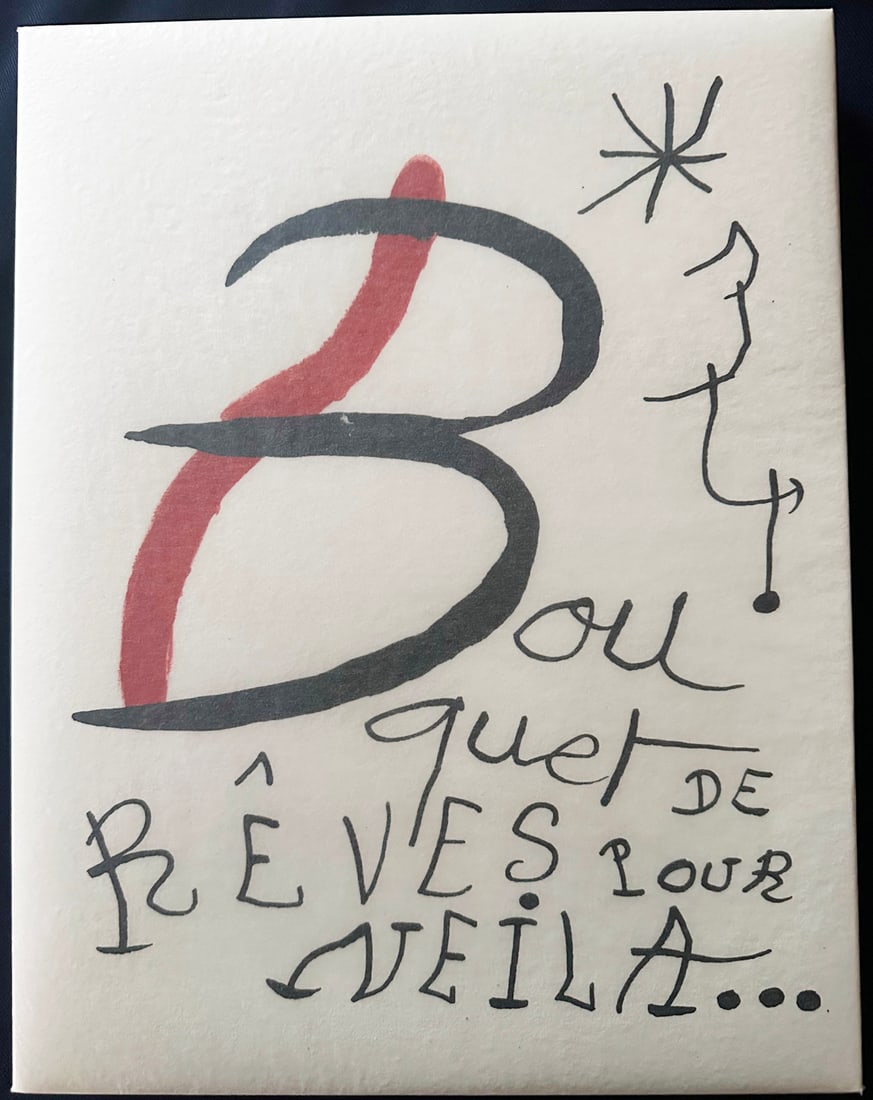 Bou
quet DE
RÊVES POUR
NEİLA...